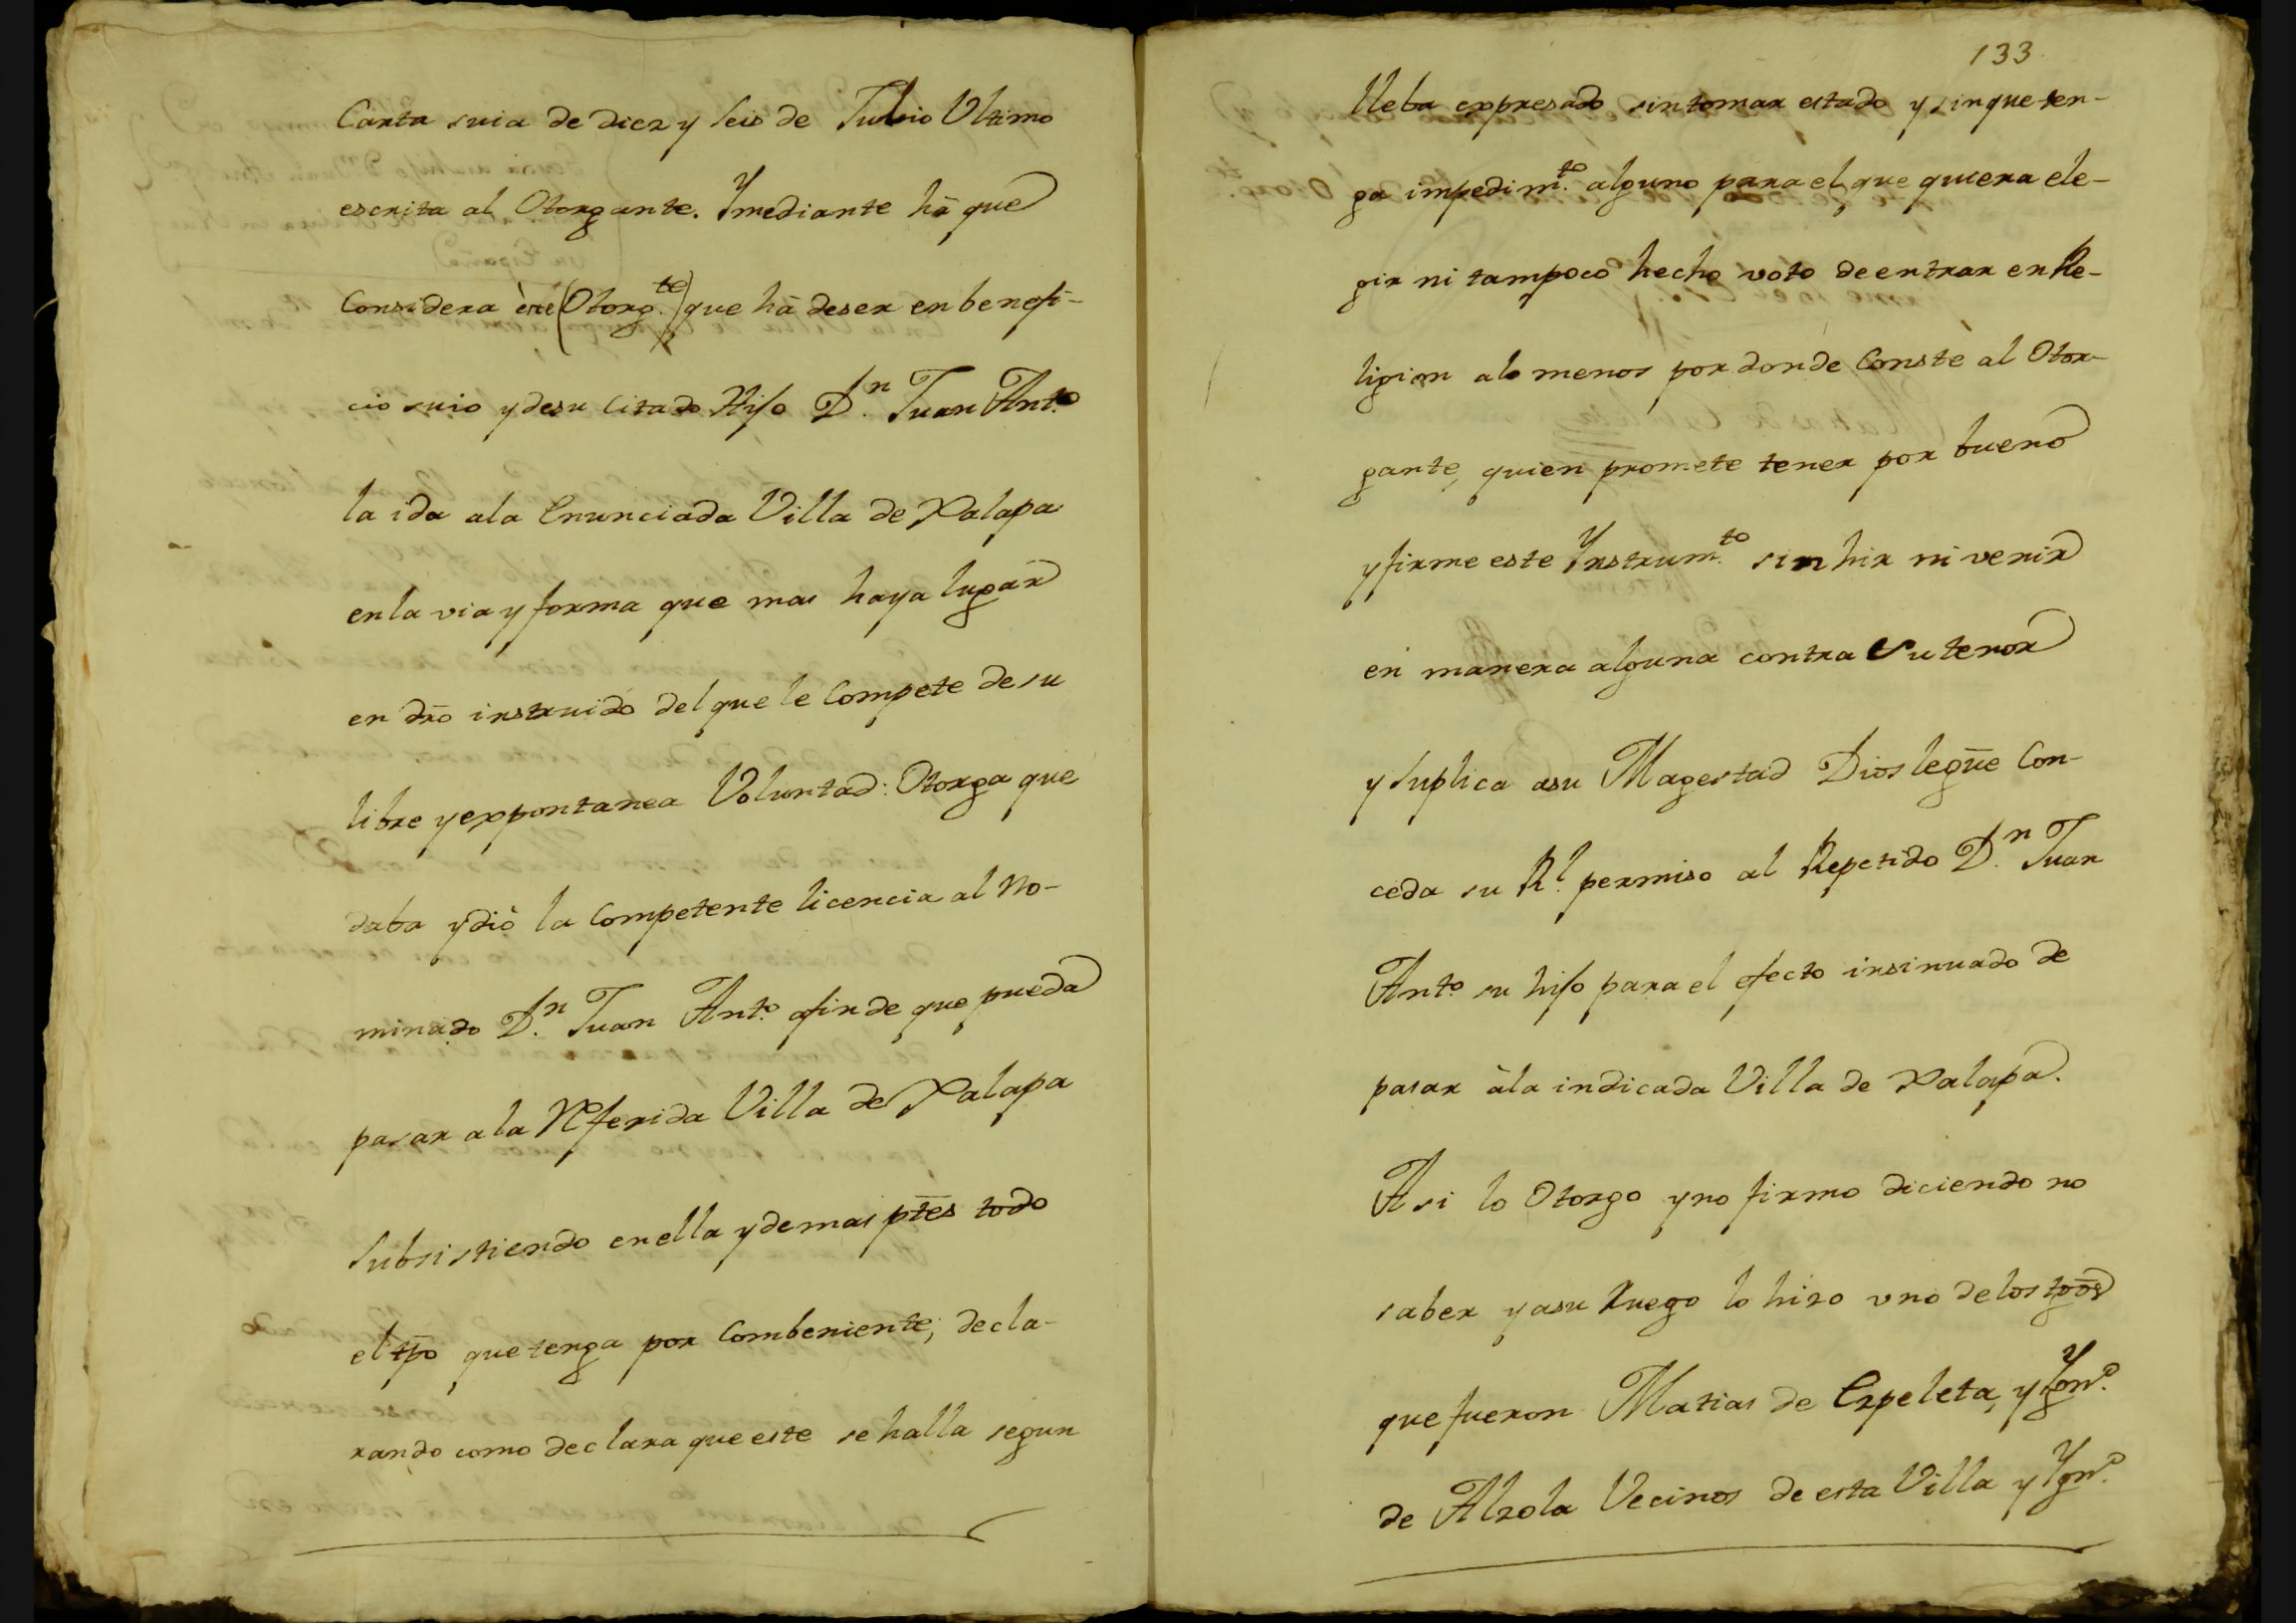 Carta suia de diez y seis de Julio Ultimo
escrita al Otorgante. Ymediante hà que
Considera ère (Otorg.te) que hà deser en benefi-
cio suio y desu Citado Hijo D.n Juan Ant.o
la ida ala Enunciada Villa de Xalapa
en la via y forma que mas haya lugar
en dro instruido del que le Compete de su
libre y expontanea Voluntad: Otorga que
daba y diò la Competente licencia al No-
minado D.n Juan Ant.o afin de que pueda
pasar a la Referida Villa de Xalapa
Subsistiendo en ella y demas ptes todo
el tpo que tenga por Combeniente; decla-
rando como declara que este se halla segun
133
lleba expresado sin tomar estado y sin que ten-
ga impedim.to alguno para el que quiera ele-
gir ni tampoco hecho voto de entrar en Re-
ligion alo menos por donde Conste al Otor-
gante, quien promete tener por bueno
y firme este Ynstrum.to sin hir ni venir
en manera alguna contra Su tenor
y Suplica asu Magestad Dios legue Con-
ceda su Rl. permiso al Repetido D.n Juan
Ant.o su hijo para el efecto insinuado de
pasar àla indicada Villa de Xalapa.
Asi lo Otorgo y no firmo diciendo no
saber y asu Ruego lo hizo uno de los tgos
que fueron Matias de Ezpeleta, y Ygn.o
de Alzola Vecinos de esta Villa y Ygn.o